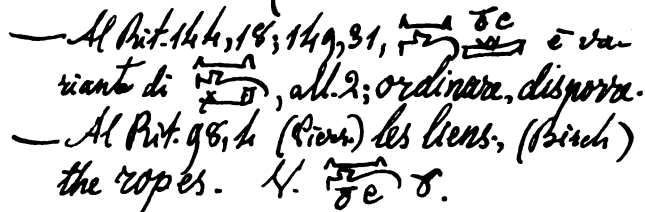 — Al Rit. 144,18; 149,31, è va-
riante di , all. 2; ordinare, disporre.
— Al Rit. 98,4 (Pierr.) les liens, (Birch)
the ropes. V.